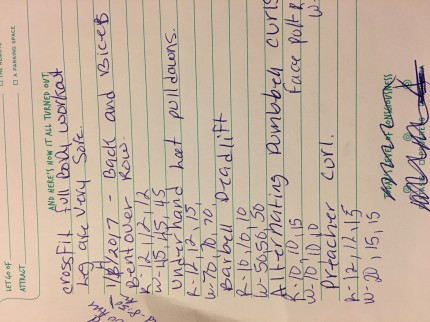 THE HEROIC
A PARKING SPACE
LET GO OF
ATTRACT
AND HERE'S HOW IT ALL TURNED OUT
crossfit full Body workout
Leg are Very Sore.
2017 - Back and Bicep
Bent over Row.
R- 12, 12, 12
W- 15, 45, 45
Underhand Lat pulldowns.
R- 12, 12, 15,
W- 70, 70, 70
Barbell Deadlift
R- 10, 10, 10
W- 50, 50, 50
Alternating Dumbbell curls
R- 10, 10, 15
Face pull R
W- 10, 10, 10
W-
Preacher curl.
R- 12, 12, 15
W- 20, 15, 15
OF CONSCIOUSNESS